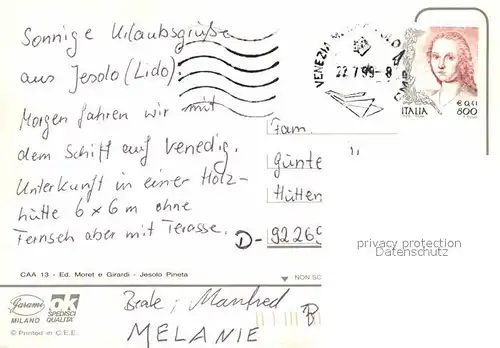 Sonnige Urlaubsgrüße
aus Jesolo (Lido).
Morgen fahren wir mit
dem Schiff auf Venedig.
Unterkunft in einer Holz-
hütte 6 x 6 m ohne
Fernseh aber mit Terasse.
CAA 13 - Ed. Moret e Girardi - Jesolo Pineta
Garami
MILANO
OK
SPEDISCI
QUALITÀ
© Printed in C.E.E.
Beate, Manfred
MELANIE
VENEZIA
22.7.99-8
ITALIA
€ 0,41
800
Fam.
Günte
Hütten
D-92269
privacy protection
Datenschutz
NON SC